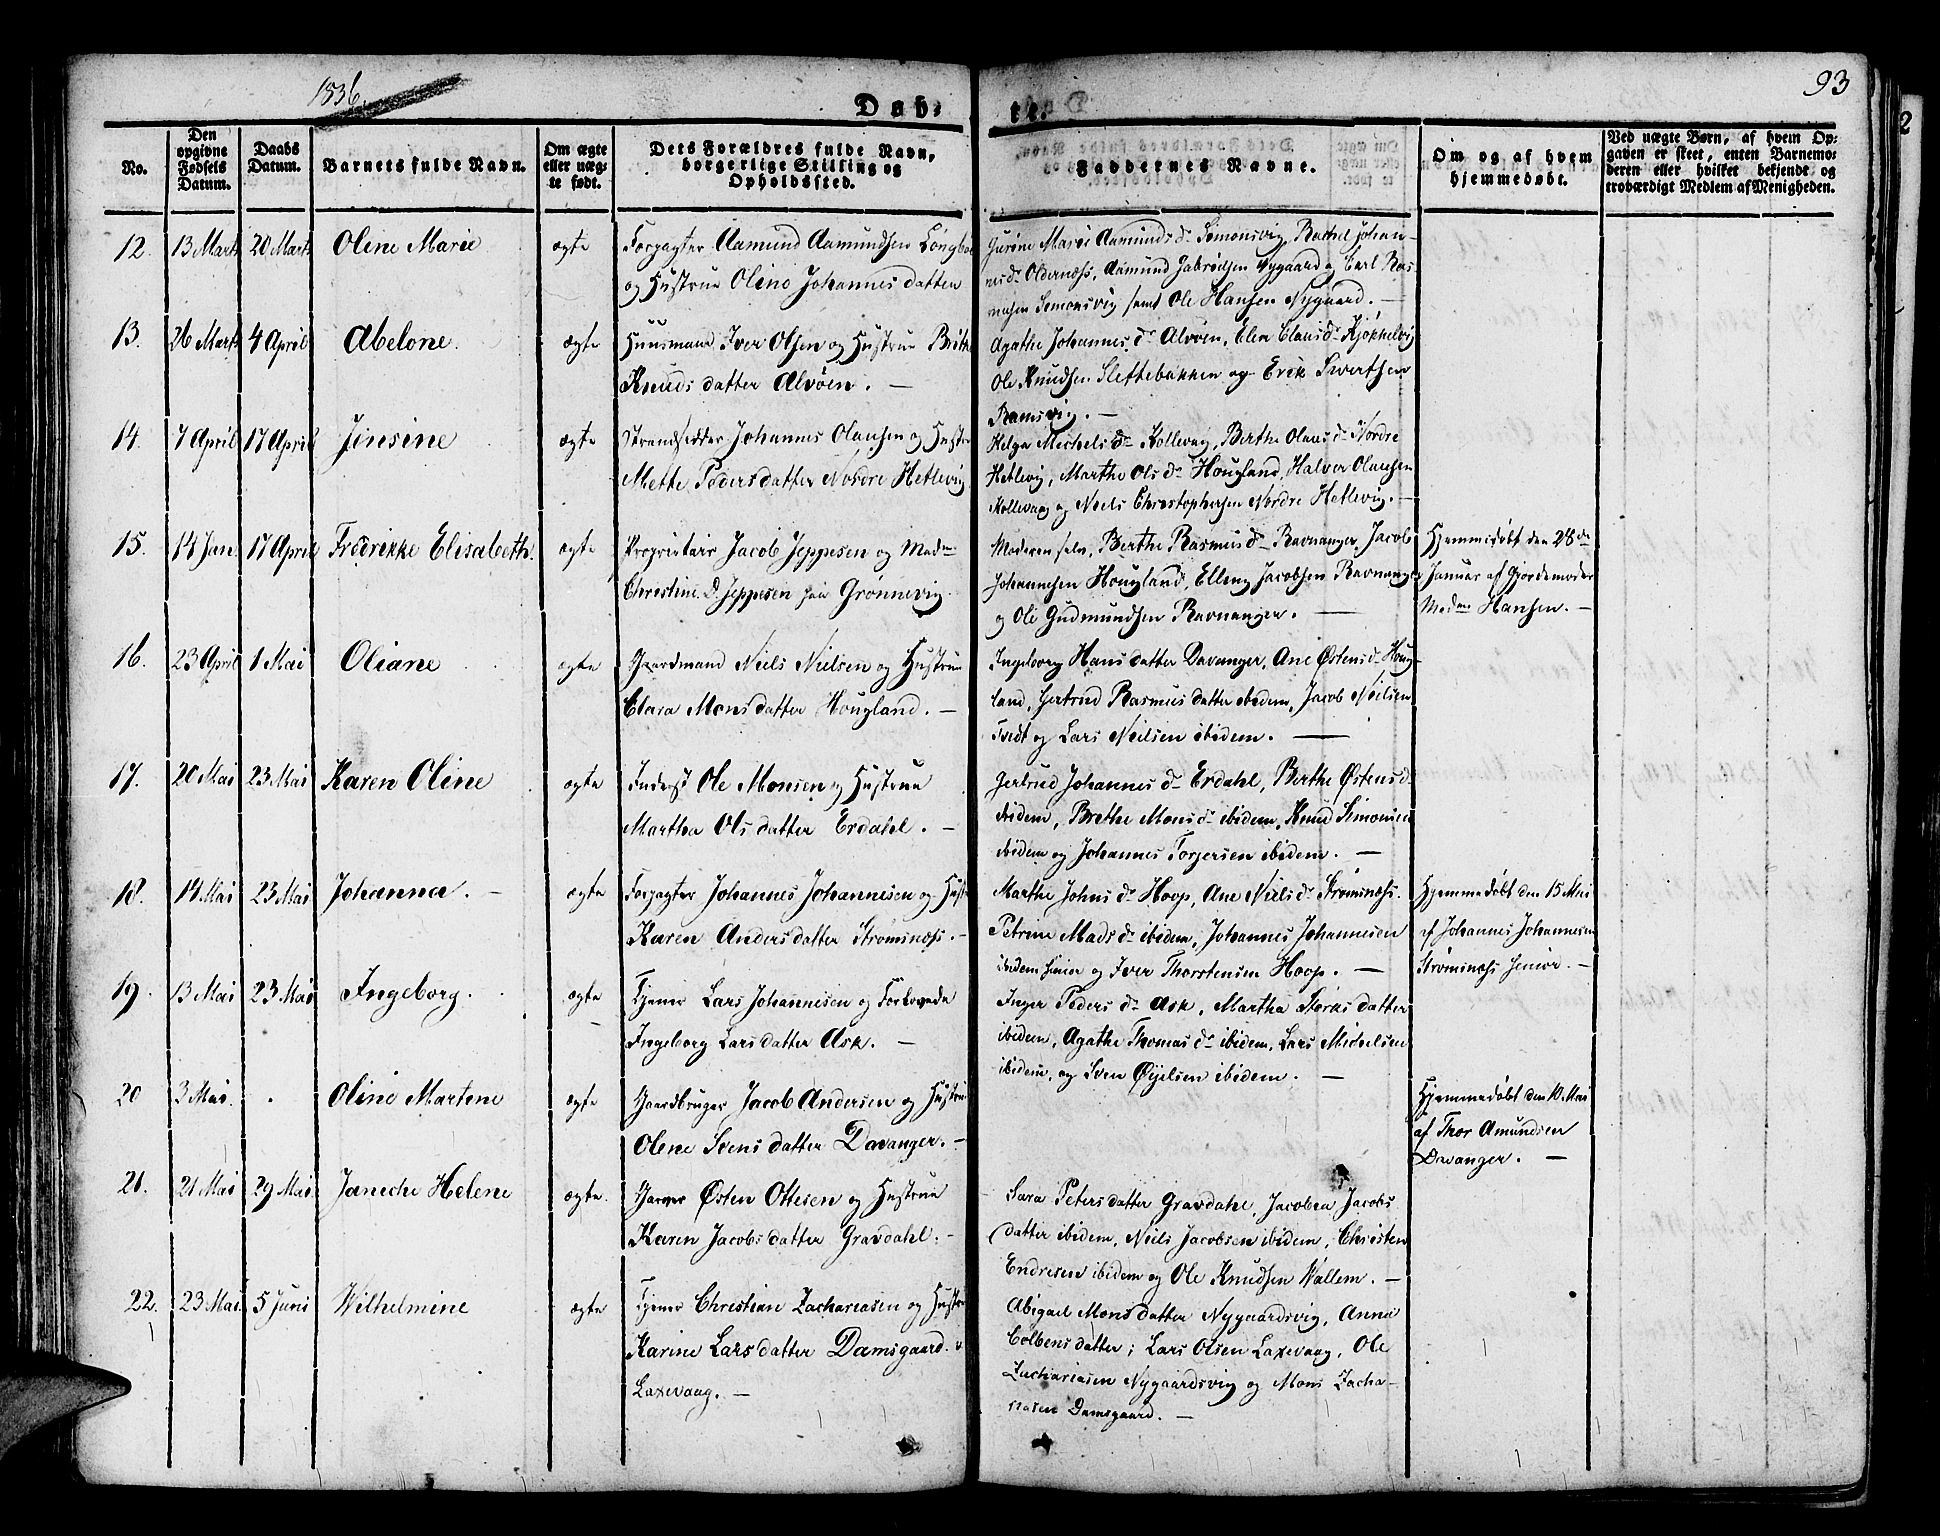 1836
93
Døb-
te.
No.
Den
opgivne
Fødsels
Datum.
Daabs
Datum.
Barnets fulde Navn.
Om ægte
eller uæg-
te født.
Dets Forældres fulde Navn,
borgerlige Stilling og
Opholdssted.
Faddernes Navne.
Om og af hvem
hjemmedøbt.
Ved uægte Børn, af hvem Op-
gaven er skeet, enten Barnemo-
deren eller hvilket bekjendt og
troværdigt Medlem af Menigheden.
12. 13 Marts 20 Marts Olene Marie ægte
Forpagter Aamund Aamundsen
og Hustrue Oline Johannesdatter
Gurine Marie Aamundsdr Simonsvig, Rachel Johan-
nesdr Oldernæss, Aamund Jabrielsen Nygaard og Carl Ras-
musen Simonsvig samt Ole Hansen Nygaard. —
13. 26 Marts 4 April Abelone. ægte
Huusmand Iver Olsen og Hustrue Brithe
Knudsdatter Alvøen. —
Agathe Johannesdr Alvøen, Elen Clausdr Kjøkkelvig
Ole Knudsen Slettebakken og Erik Sivertsen
Ramsvig. —
14. 7 April 17 April Jensine ægte
Strandsidder Johannes Olausen og Hustrue
Mette Pedersdatter Nordre Hetlevig
Helga Michelsdr Kollevag, Berthe Olausdr Nordre
Hetlevig, Marthe Olsdr Hougland, Halver Olausen
Kollevaag og Niels Christophersen Nordre Hetlevig. —
15. 14 Jan. 17 April Fredrikke Elisabeth. ægte
Proprietair Jacob Jeppesen og Madme
Christine D. Jeppesen paa Grønnevig.
Moderen selv, Berthe Rasmusdr Ravnanger, Jacob
Johannesen Hougland, Elling Jacobsen Ravnanger
og Ole Gudmundsen Ravnanger. —
Hjemmedøbt den 28de
Januar af Gjordemoder
Madme Hansen. —
16. 23 April 1 Mai Oliane ægte
Gaardmand Niels Nielsen og Hustrue
Clara Monsdatter Hougland. —
Ingeborg Hansdatter Davanger, Ane Østensdr Houg-
land, Gertrud Rasmusdatter ibidem, Jacob Nielsen
Tvedt og Lars Nielsen ibidem. —
17. 20 Mai 23 Mai Karen Oline ægte
Inderst Ole Monsen og Hustrue
Martha Olsdatter Erdahl. —
Gertrud Johannesdr Erdahl, Berthe Østensdr
ibidem, Brethe Monsdr ibidem, Knud Simonsen
ibidem og Johannes Torjersen ibidem. —
18. 14 Mai 23 Mai Johanna. — ægte
Forpagter Johannes Johannesen og Hustrue
Karen Andersdatter Strømsnæss. —
Marthe Johnsdr Hoop, Ane Nielsdr Strømsnæss.
Petrine Madsdr ibidem, Johannes Johannesen
ibidem senior og Iver Thorstensen Hoop. —
Hjemmedøbt den 15 Mai
af Johannes Johannesen
Strømsnæss senior. —
19. 13 Mai 23 Mai Ingeborg. ægte
Tjener Lars Johannesen og Forlovede
Ingeborg Larsdatter Ask. —
Inger Pedersdr Ask, Martha datter
ibidem, Agathe Thomasdr ibidem, Lars Michelsen
ibidem, og Sven ibidem. —
20 3 Mai. Oline Martine ægte
Gaardbruger Jacob Andersen og Hustrue
Olene Svensdatter Davanger. —
Hjemmedøbt den 10 Mai
af Thor Amundsen
Davanger. —
21. 21 Mai 29 Mai Janiche Helene ægte.
Garver Østen Ottesen og Hustrue
Karen Jacobsdatter Gravdahl. —
Sara Petersdatter Gravdahl, Jacobea Jacobs-
datter ibidem, Niels Jacobsen ibidem, Christen
Endresen ibidem og Ole Knudsen Wallem. —
22. 23 Mai 5 Juni Wilhelmine ægte
Tjener Christian Zachariasen og Hustrue
Karine Larsdatter Damsgaard.
Laxevaag. —
Abigael Monsdatter Nygaardsvig, Anna
Colbensdatter; Lars Olsen Laxevaag, Ole
Zachariasen Nygaardsvig og Mons Zacha-
riasen Damsgaard. —